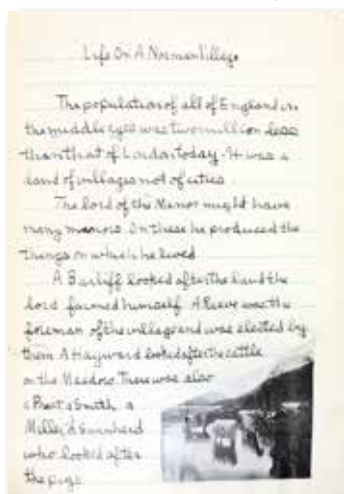 Life On A Norman Village
The population of all of England in
the middle ages was two million less
than that of London today. It was a
land of villages not of cities.
The lord of the Manor might have
many manors. In these he produced the
things on which he lived
A Bailiff looked after the land the
lord farmed himself. A Reeve was the
foreman of the village and was elected by
them. A Hayward looked after the cattle
on the Meadow. There was also
a Priest a Smith a
Miller a Swinherd
who looked after
the pigs.